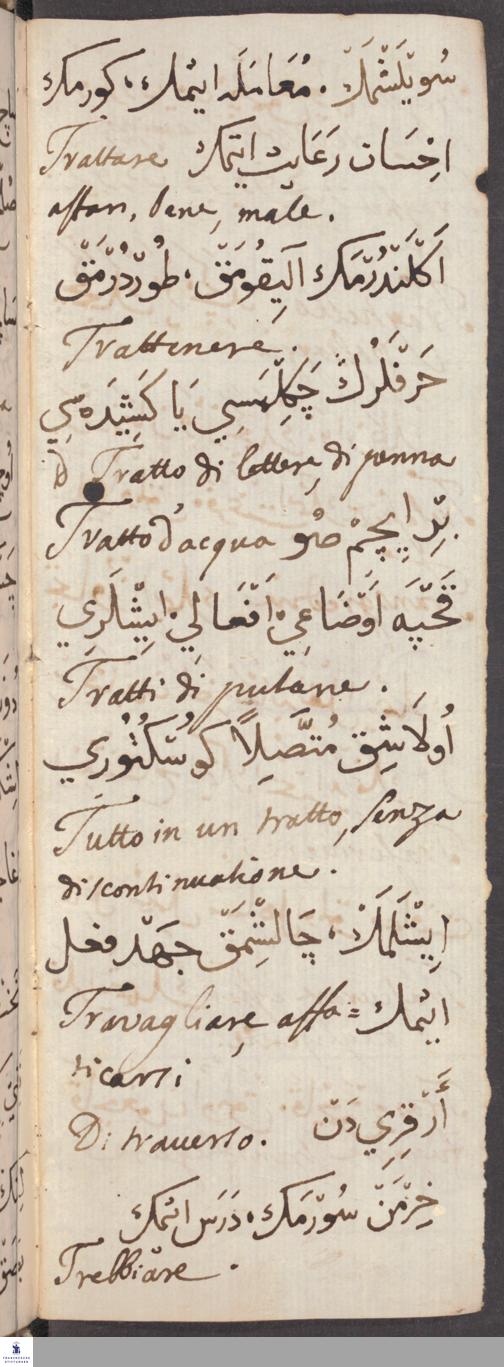 سُويْلَشْمَكْ ، مُعَامَلَه ايتمك ، كورمك
Trattare احْسَان رَعَايت ايتمك
affari, bene, male.
اَكْلَنْدُرْمَك اَلَيقُومَقْ ، طُورْدُرْمَقْ
Trattenere.
حَرْفْلَرُكْ چَكِلْمَسِي يَا كَشِيدَه سِي
Tratto di lettere, di penna
Tratto d'acqua بِرْ اِيچِمْ صُو
قَحْپَه اَوْضَاعِي ، اَفْعَالِي ، ايشْلَرِي
Tratti di putane.
اُولَاشِقْ مُتَّصِلاً
Tutto in un tratto, senza
discontinuatione.
اِيشْلَمَكْ ، چَالِشْمَقْ جَهْد
Travagliare, affa= ايتمك
ticarsi
Di traverso. اَرْقرِي دَنْ
خِرْمَنْ سُورْمَك ، دَرَس ايتمك
Trebbiare.